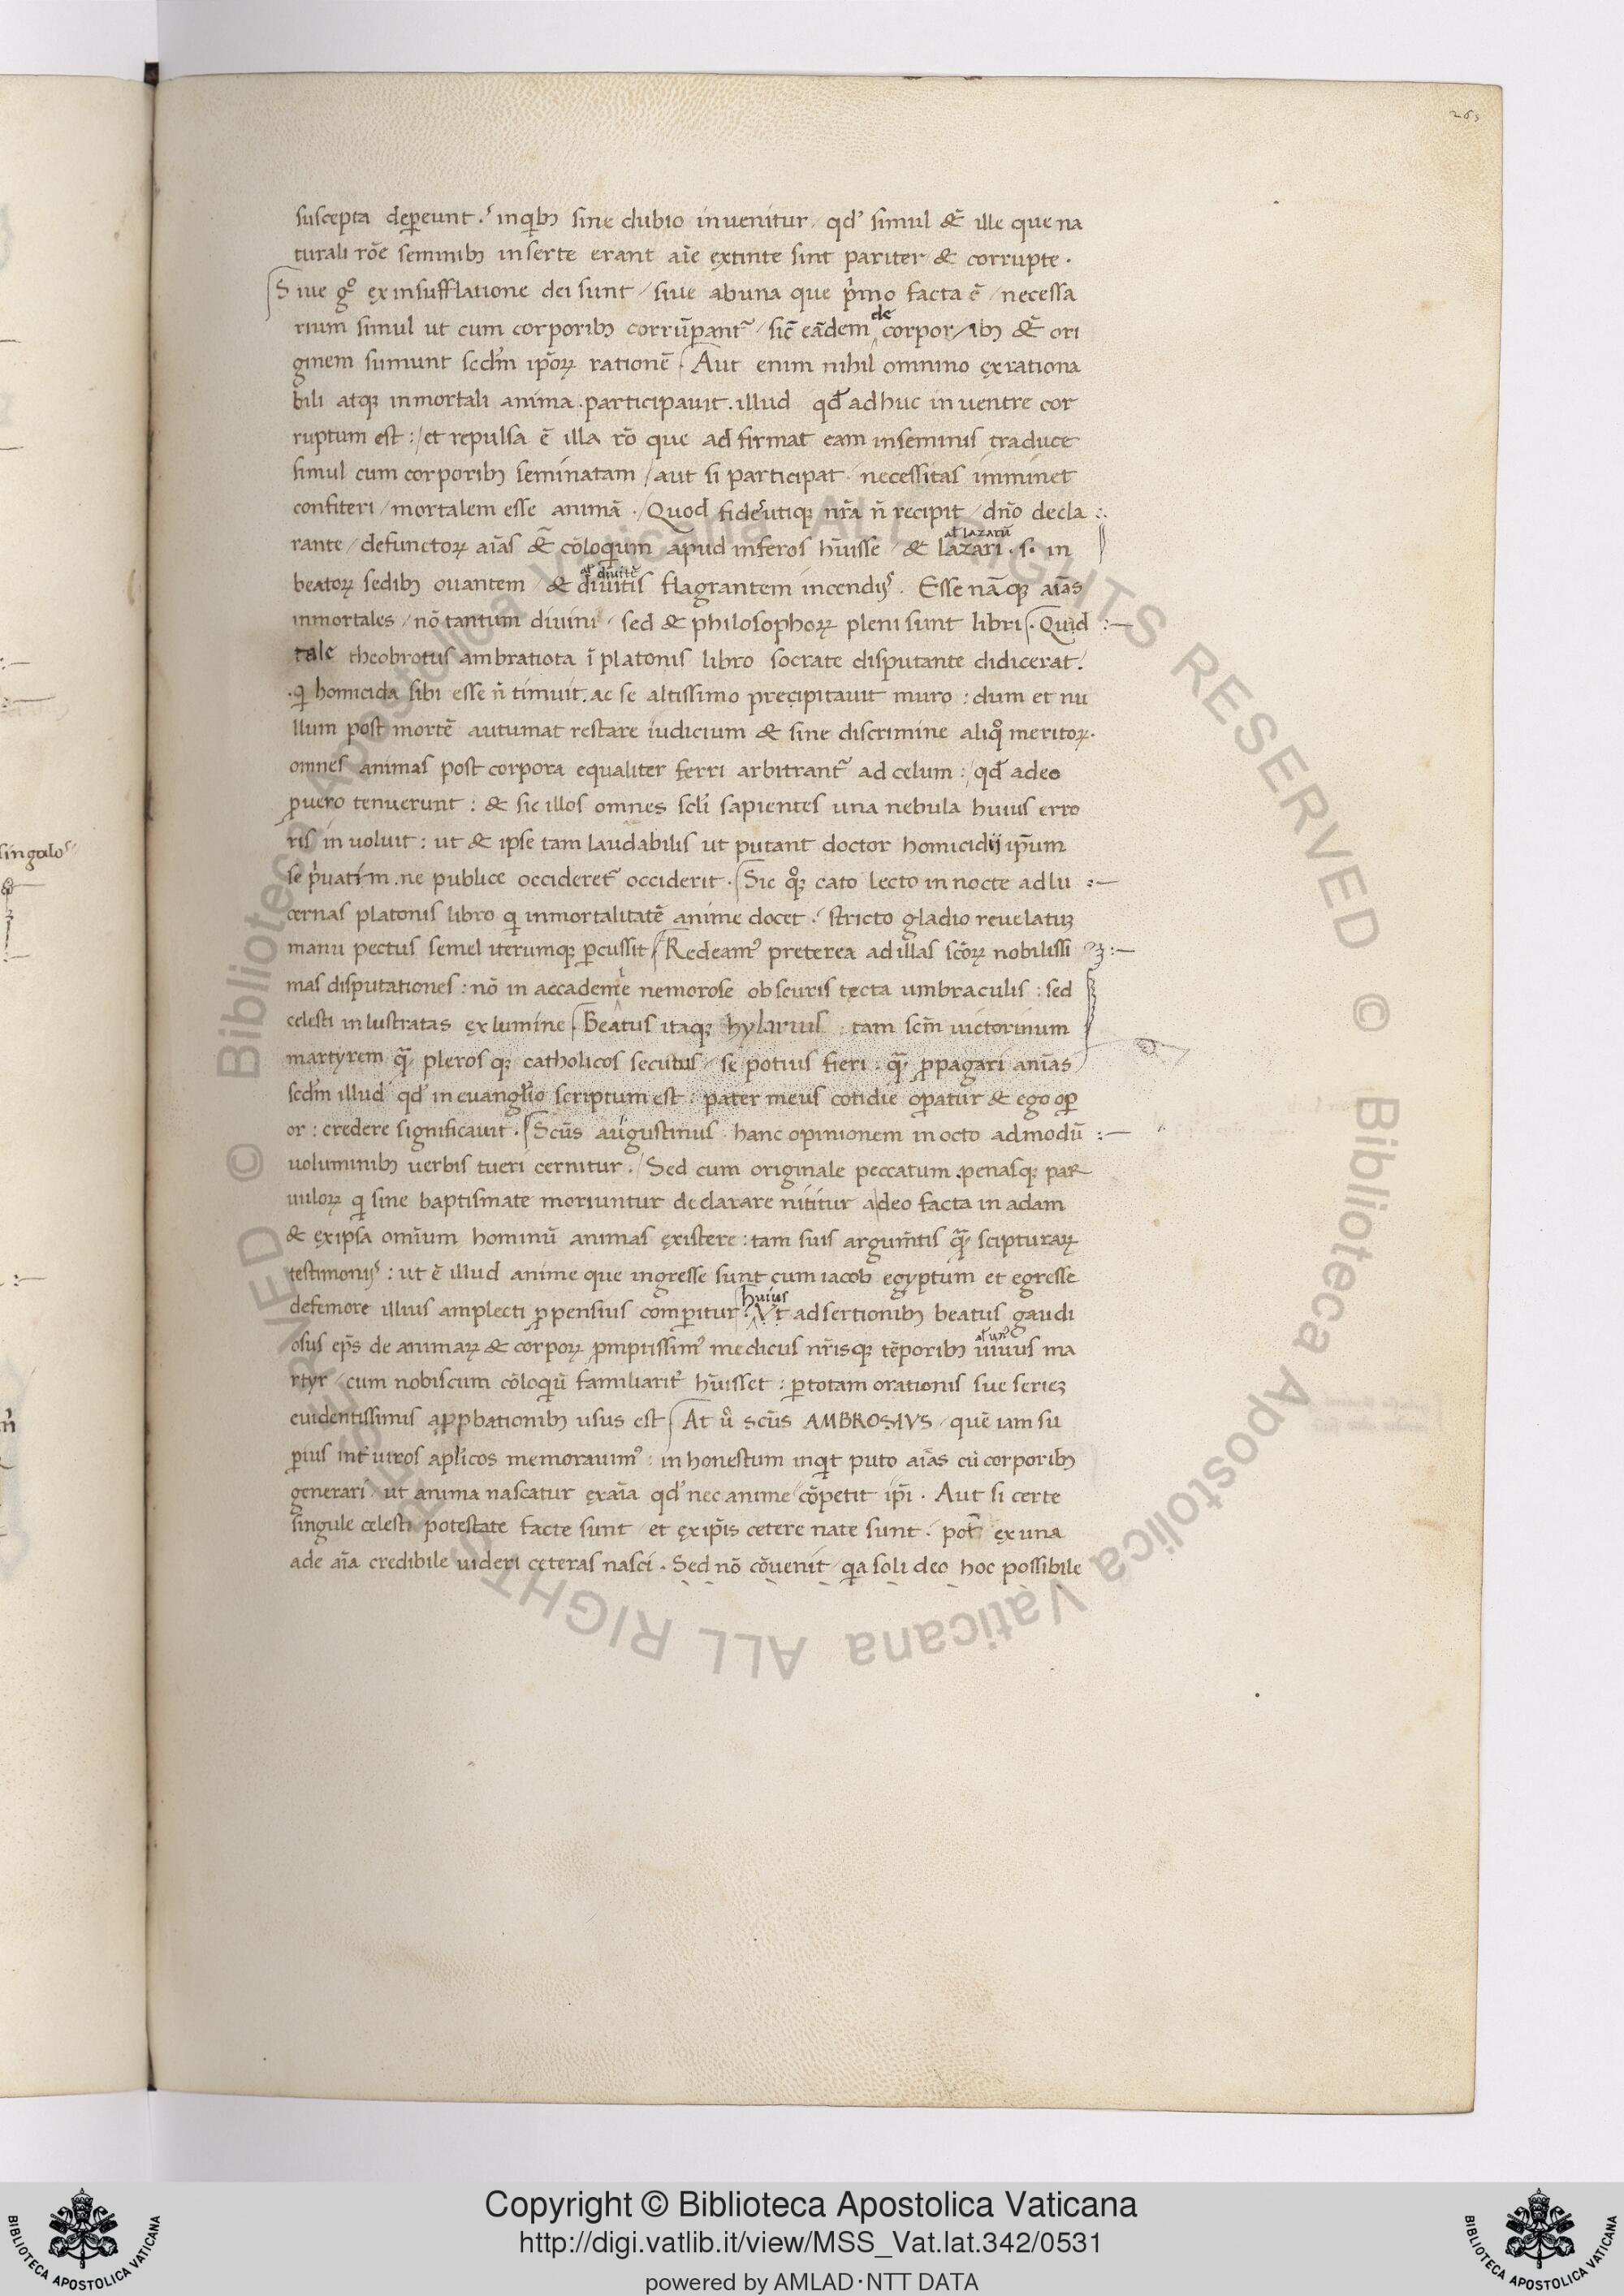 263
suscepta dep̱eunt. inqib; sine dubio inuenitur, qd' simul &̄ ille que na
turali rōe seminib; inserte erant aīe ęxtinte sint pariter & corrupte.
Siue g° ex insufflatione dei sunt / siue abuna que p'mo facta ē / necessa
rium simul ut cum corporib; corrūpant~ / sic̄ eādem de corpor/ib; &̄ ori
ginem sumunt scd'm ip̄oꝝ rationē. Aut enim nihil omnino exrationa
bili atq; inmortali anima. participauit. illud qd̄ adhuc in uentre cor
ruptum est: / et repulsa ē illa rō que ad firmat eam inseminis traduce
simul cum corporib; seminatam / aut si participat. necessitas imminet
confiteri / mortalem esse animā. / Quod fides utiq; nr̄a n̄ recipit / dn̄o decla
rante / defunctoꝝ aīas &̄ cōloqium apud inferos h̄uisse / & lazari. s. in
al' lazarū
beatoꝝ sedib; ouantem / & diuitis flagrantem incendijs. Esse nāq; aīas
al' diuitē
inmortales / nō tantum diuini / sed & philosophoꝝ pleni sunt libri. Quid
tale theobrotus ambratiota ī platonis libro socrate disputante didicerat.
qi homicida sibi esse n̄ timuit. ac se altissimo precipitauit muro: dum et nu
llum post mortē autumat restare iudicium & sine discrimine aliq° meritoꝝ.
omnes animas post corpora equaliter ferri arbitrant~ ad celum: / qd̄ adeo
p̱uero tenuerunt: & sic illos omnes scl'i sapientes una nebula huius erro
ris in uoluit: ut & ipse tam laudabilis ut putant doctor homicidij ip̄um
se p'uatim. ne publice occideret~ occiderit. Sic q°q; cato lecto in nocte ad lu
cernas platonis libro qi inmortalitatē anime docet. stricto gladio reuelatuꝫ
manu pectus semel iterumq; p̱cussit / Redeam' preterea ad illas sc̄oꝝ nobilissi
mas disputationes: nō in accademie nemorose obscuris tecta umbraculis: sed
celesti inlustratas ex lumine. Beatus itaq; hylarius. tam sc̄m uictorinum
martyrem q̄ plerosq; catholicos secutus / se potius fieri. q̄ ꝓpagari anīas
scd'm illud qd' in euangl'io scriptum est: pater meus cotidie op̱atur & ego op̱
or: credere significauit. Scūs augustinus. hanc opinionem in octo admodū
uoluminib; uerbis tueri cernitur. / Sed cum originale peccatum. penasq; paR
uuloꝝ qi sine baptismate moriuntur declarare nititur adeo facta in adam
& exipsa omīum hominū animas existere: tam suis argum̄tis q̄ scipturaꝝ
testimonijs: ut ē illud anime que ingresse sunt cum iacob egyptum et egresse
defemore illius amplecti ꝓpensius comp̱itur. huius Vt adsertionib; beatus gaudi
osus ep̄s de animaꝝ & corpoꝝ ꝓmptissim' medicus nr̄isq; tēporib; uiuus ma
al' un'
rtyr / cum nobiscum cōloqiū familiarit' h̄uisset: p̱ totam orationis sue serieꝫ
euidentissimis apꝓbationib; usus est. At u° scūs AMBROSIVS / quē iam su
p̱ius int' uiros apl'icos memorauim': in honestum inqit puto aīas cū corporib;
generari. ut anima nascatur exaīa qd' nec anime cōpetit ip̄i. Aut si certe
singule celesti potestate facte sunt / et exip̄is cetere nate sunt. pot' ex una
ade aīa credibile uideri ceteras nasci. Sed nō cōuenit / qia soli deo hoc possibile
singulos
Copyright © Biblioteca Apostolica Vaticana
http://digi.vatlib.it/view/MSS_Vat.lat.342/0531
powered by AMLAD·NTT DATA
BIBLIOTECA APOSTOLICA VATICANA
BIBLIOTECA APOSTOLICA VATICANA
© Biblioteca Apostolica Vaticana ALL RIGHTS RESERVED © Biblioteca Apostolica Vaticana ALL RIGHTS RESERVED